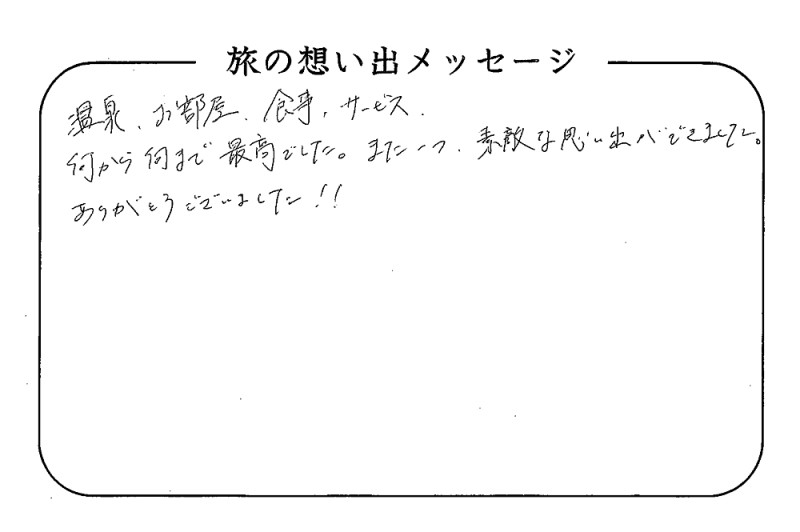 旅の想い出メッセージ
温泉、お部屋、食事、サービス、
何から何まで最高でした。また一つ、素敵な思い出ができました。
ありがとうございました!!